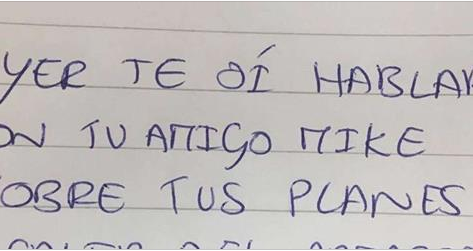 YER TE OÍ HABLAR
ON TU AMIGO MIKE
OBRE TUS PLANES